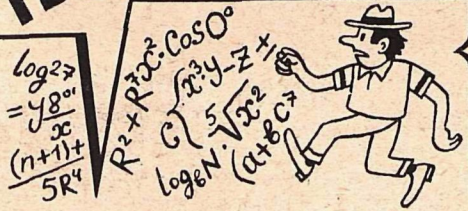 log²⁷
= y8°ˡ
x
(n+1)+
5R⁴
R²+R⁷x²·Cos0°
C{x³y-z±
log₆N·⁵√x²
(a+bc⁷